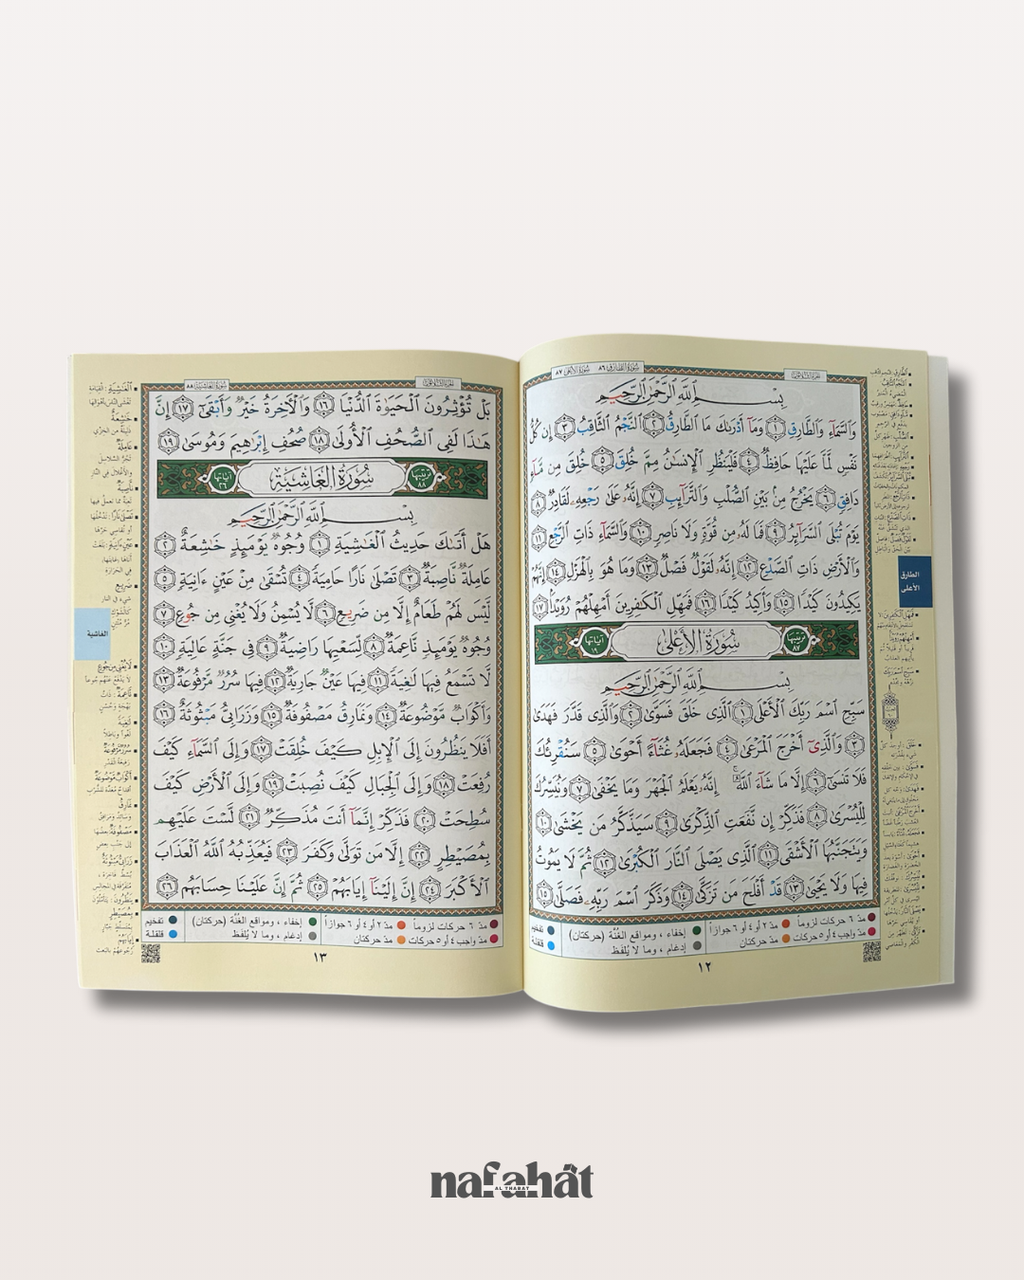 سورة الطارق ٨٦ سورة الأعلى ٨٧
بِسْمِ ٱللَّهِ ٱلرَّحْمَٰنِ ٱلرَّحِيمِ
وَٱلسَّمَآءِ وَٱلطَّارِقِ ١ وَمَآ أَدْرَىٰكَ مَا ٱلطَّارِقُ ٢ ٱلنَّجْمُ ٱلثَّاقِبُ ٣ إِن كُلُّ
نَفْسٍ لَّمَّا عَلَيْهَا حَافِظٌ ٤ فَلْيَنظُرِ ٱلْإِنسَٰنُ مِمَّ خُلِقَ ٥ خُلِقَ مِن مَّآءٍ
دَافِقٍ ٦ يَخْرُجُ مِنۢ بَيْنِ ٱلصُّلْبِ وَٱلتَّرَآئِبِ ٧ إِنَّهُۥ عَلَىٰ رَجْعِهِۦ لَقَادِرٌ ٨
يَوْمَ تُبْلَى ٱلسَّرَآئِرُ ٩ فَمَا لَهُۥ مِن قُوَّةٍ وَلَا نَاصِرٍ ١٠ وَٱلسَّمَآءِ ذَاتِ ٱلرَّجْعِ ١١
وَٱلْأَرْضِ ذَاتِ ٱلصَّدْعِ ١٢ إِنَّهُۥ لَقَوْلٌ فَصْلٌ ١٣ وَمَا هُوَ بِٱلْهَزْلِ ١٤ إِنَّهُمْ
يَكِيدُونَ كَيْدًا ١٥ وَأَكِيدُ كَيْدًا ١٦ فَمَهِّلِ ٱلْكَٰفِرِينَ أَمْهِلْهُمْ رُوَيْدًۢا ١٧
ترتيبها ٨٧ سُورَةُ الأَعْلَىٰ آياتها ١٩
بِسْمِ ٱللَّهِ ٱلرَّحْمَٰنِ ٱلرَّحِيمِ
سَبِّحِ ٱسْمَ رَبِّكَ ٱلْأَعْلَى ١ ٱلَّذِى خَلَقَ فَسَوَّىٰ ٢ وَٱلَّذِى قَدَّرَ فَهَدَىٰ
٣ وَٱلَّذِىٓ أَخْرَجَ ٱلْمَرْعَىٰ ٤ فَجَعَلَهُۥ غُثَآءً أَحْوَىٰ ٥ سَنُقْرِئُكَ
فَلَا تَنسَىٰٓ ٦ إِلَّا مَا شَآءَ ٱللَّهُ ۚ إِنَّهُۥ يَعْلَمُ ٱلْجَهْرَ وَمَا يَخْفَىٰ ٧ وَنُيَسِّرُكَ
لِلْيُسْرَىٰ ٨ فَذَكِّرْ إِن نَّفَعَتِ ٱلذِّكْرَىٰ ٩ سَيَذَّكَّرُ مَن يَخْشَىٰ ١٠
وَيَتَجَنَّبُهَا ٱلْأَشْقَى ١١ ٱلَّذِى يَصْلَى ٱلنَّارَ ٱلْكُبْرَىٰ ١٢ ثُمَّ لَا يَمُوتُ
فِيهَا وَلَا يَحْيَىٰ ١٣ قَدْ أَفْلَحَ مَن تَزَكَّىٰ ١٤ وَذَكَرَ ٱسْمَ رَبِّهِۦ فَصَلَّىٰ ١٥
الطارق
الأعلى
مدّ ٦ حركات لزوماً مدّ ٢ أو ٤ أو ٦ جوازاً إخفاء ، ومواقع الغُنَّة (حركتان) تفخيم
مدّ واجب ٤ أو ٥ حركات مدّ حركتان إدغام ، وما لا يُلفظ قلقلة
١٢
سورة الغاشية ٨٨
بَلْ تُؤْثِرُونَ ٱلْحَيَوٰةَ ٱلدُّنْيَا ١٦ وَٱلْءَاخِرَةُ خَيْرٌ وَأَبْقَىٰٓ ١٧ إِنَّ
هَٰذَا لَفِى ٱلصُّحُفِ ٱلْأُولَىٰ ١٨ صُحُفِ إِبْرَٰهِيمَ وَمُوسَىٰ ١٩
ترتيبها ٨٨ سُورَةُ الغَاشِيَةِ آياتها ٢٦
بِسْمِ ٱللَّهِ ٱلرَّحْمَٰنِ ٱلرَّحِيمِ
هَلْ أَتَىٰكَ حَدِيثُ ٱلْغَٰشِيَةِ ١ وُجُوهٌ يَوْمَئِذٍ خَٰشِعَةٌ ٢
عَامِلَةٌ نَّاصِبَةٌ ٣ تَصْلَىٰ نَارًا حَامِيَةً ٤ تُسْقَىٰ مِنْ عَيْنٍ ءَانِيَةٍ ٥
لَّيْسَ لَهُمْ طَعَامٌ إِلَّا مِن ضَرِيعٍ ٦ لَّا يُسْمِنُ وَلَا يُغْنِى مِن جُوعٍ ٧
وُجُوهٌ يَوْمَئِذٍ نَّاعِمَةٌ ٨ لِّسَعْيِهَا رَاضِيَةٌ ٩ فِى جَنَّةٍ عَالِيَةٍ ١٠
لَّا تَسْمَعُ فِيهَا لَٰغِيَةً ١١ فِيهَا عَيْنٌ جَارِيَةٌ ١٢ فِيهَا سُرُرٌ مَّرْفُوعَةٌ ١٣
وَأَكْوَابٌ مَّوْضُوعَةٌ ١٤ وَنَمَارِقُ مَصْفُوفَةٌ ١٥ وَزَرَابِىُّ مَبْثُوثَةٌ ١٦
أَفَلَا يَنظُرُونَ إِلَى ٱلْإِبِلِ كَيْفَ خُلِقَتْ ١٧ وَإِلَى ٱلسَّمَآءِ كَيْفَ
رُفِعَتْ ١٨ وَإِلَى ٱلْجِبَالِ كَيْفَ نُصِبَتْ ١٩ وَإِلَى ٱلْأَرْضِ كَيْفَ
سُطِحَتْ ٢٠ فَذَكِّرْ إِنَّمَآ أَنتَ مُذَكِّرٌ ٢١ لَّسْتَ عَلَيْهِم
بِمُصَيْطِرٍ ٢٢ إِلَّا مَن تَوَلَّىٰ وَكَفَرَ ٢٣ فَيُعَذِّبُهُ ٱللَّهُ ٱلْعَذَابَ
ٱلْأَكْبَرَ ٢٤ إِنَّ إِلَيْنَآ إِيَابَهُمْ ٢٥ ثُمَّ إِنَّ عَلَيْنَا حِسَابَهُم ٢٦
الغاشية
مدّ ٦ حركات لزوماً مدّ ٢ أو ٤ أو ٦ جوازاً إخفاء ، ومواقع الغُنَّة (حركتان) تفخيم
مدّ واجب ٤ أو ٥ حركات مدّ حركتان إدغام ، وما لا يُلفظ قلقلة
١٣
nafahât
AL THABAT